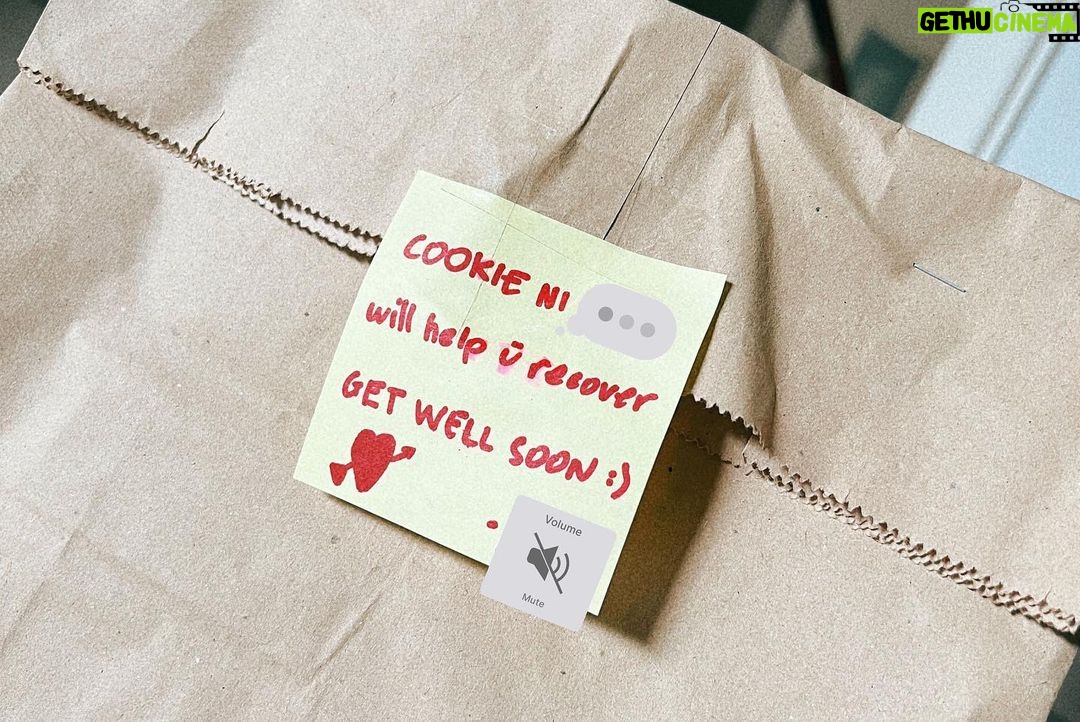 GETHUCINEMA
COOKIE NI
will help ü recover
GET WELL SOON :)
Volume
Mute